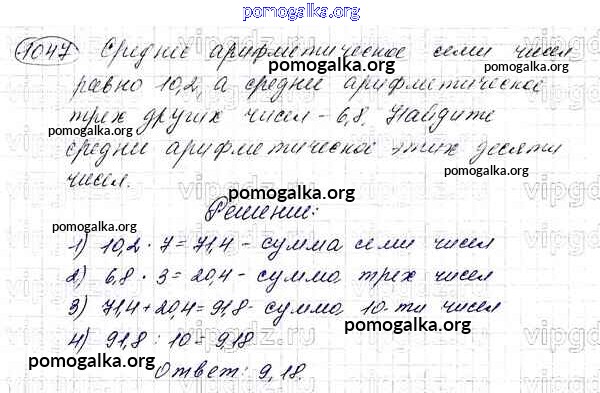 pomogalka.org
1047 Среднее арифметическое семи чисел
pomogalka.org pomogalka.org
равно 10,2, а среднее арифметическое
трех других чисел - 6,8. Найдите
pomogalka.org pomogalka.org
среднее арифметическое этих десяти
чисел.
pomogalka.org
Решение:
1) 10,2 · 7 = 71,4 - сумма семи чисел
2) 6,8 · 3 = 20,4 - сумма трех чисел
3) 71,4 + 20,4 = 91,8 - сумма 10-ти чисел
pomogalka.org
4) 91,8 : 10 = 9,18
pomogalka.org
Ответ: 9,18.
pomogalka.org